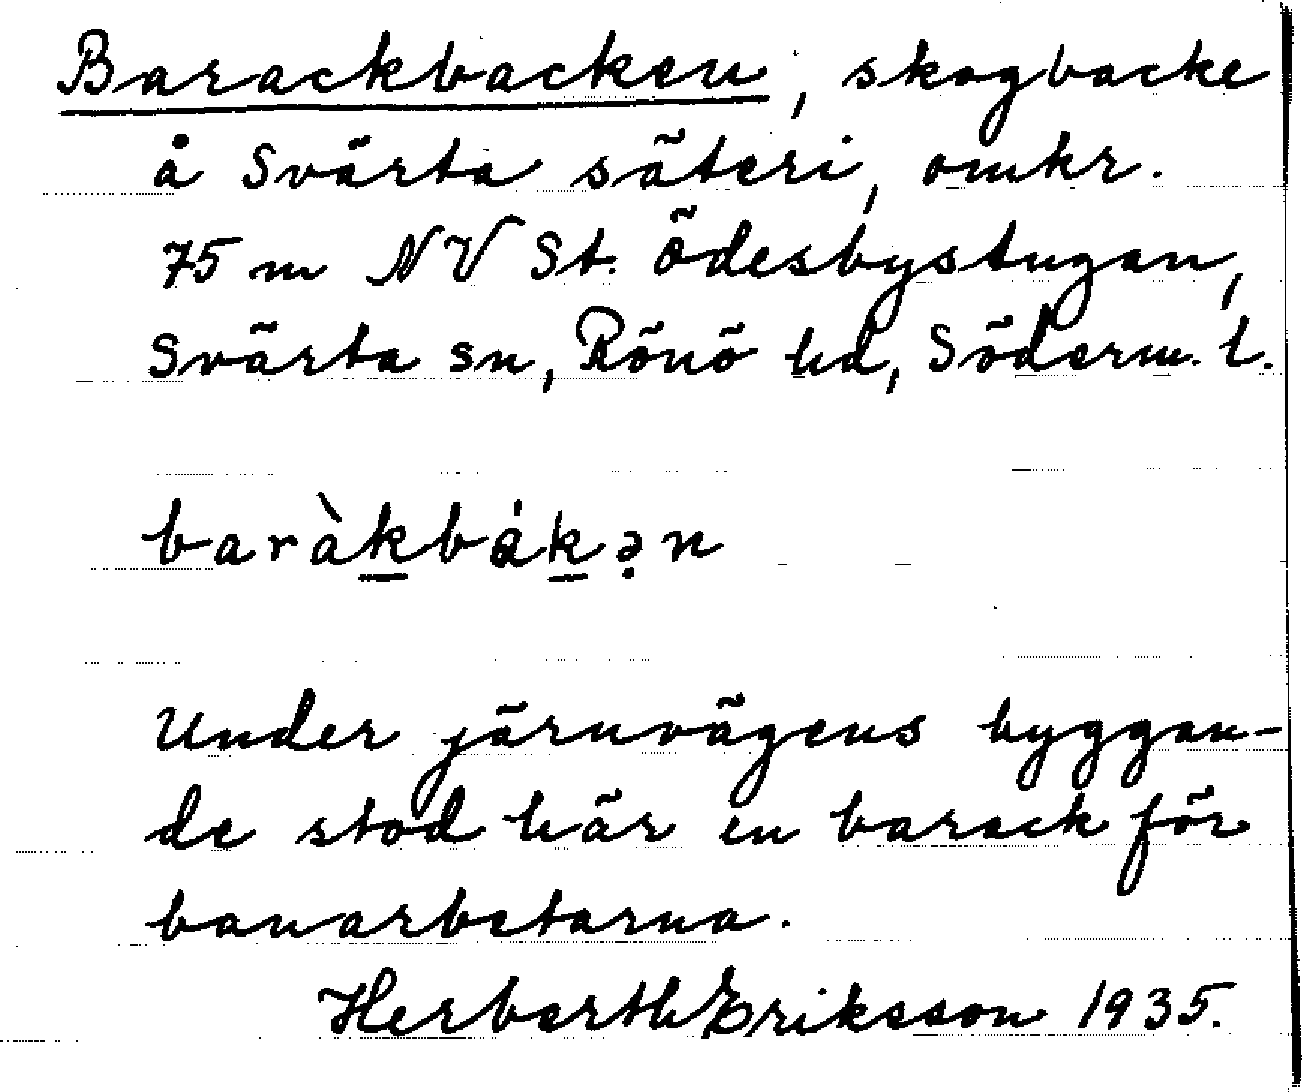 Barackbacken, skogbacke
å Svärta säteri, omkr.
75 m NV St. Ödesbystugan,
Svärta sn, Rönö hd, Söderm. l.
baràkbákə̣n
Under järnvägens byggan-
de stod här en barack för
banarbetarna.
Herbert Eriksson 1935.